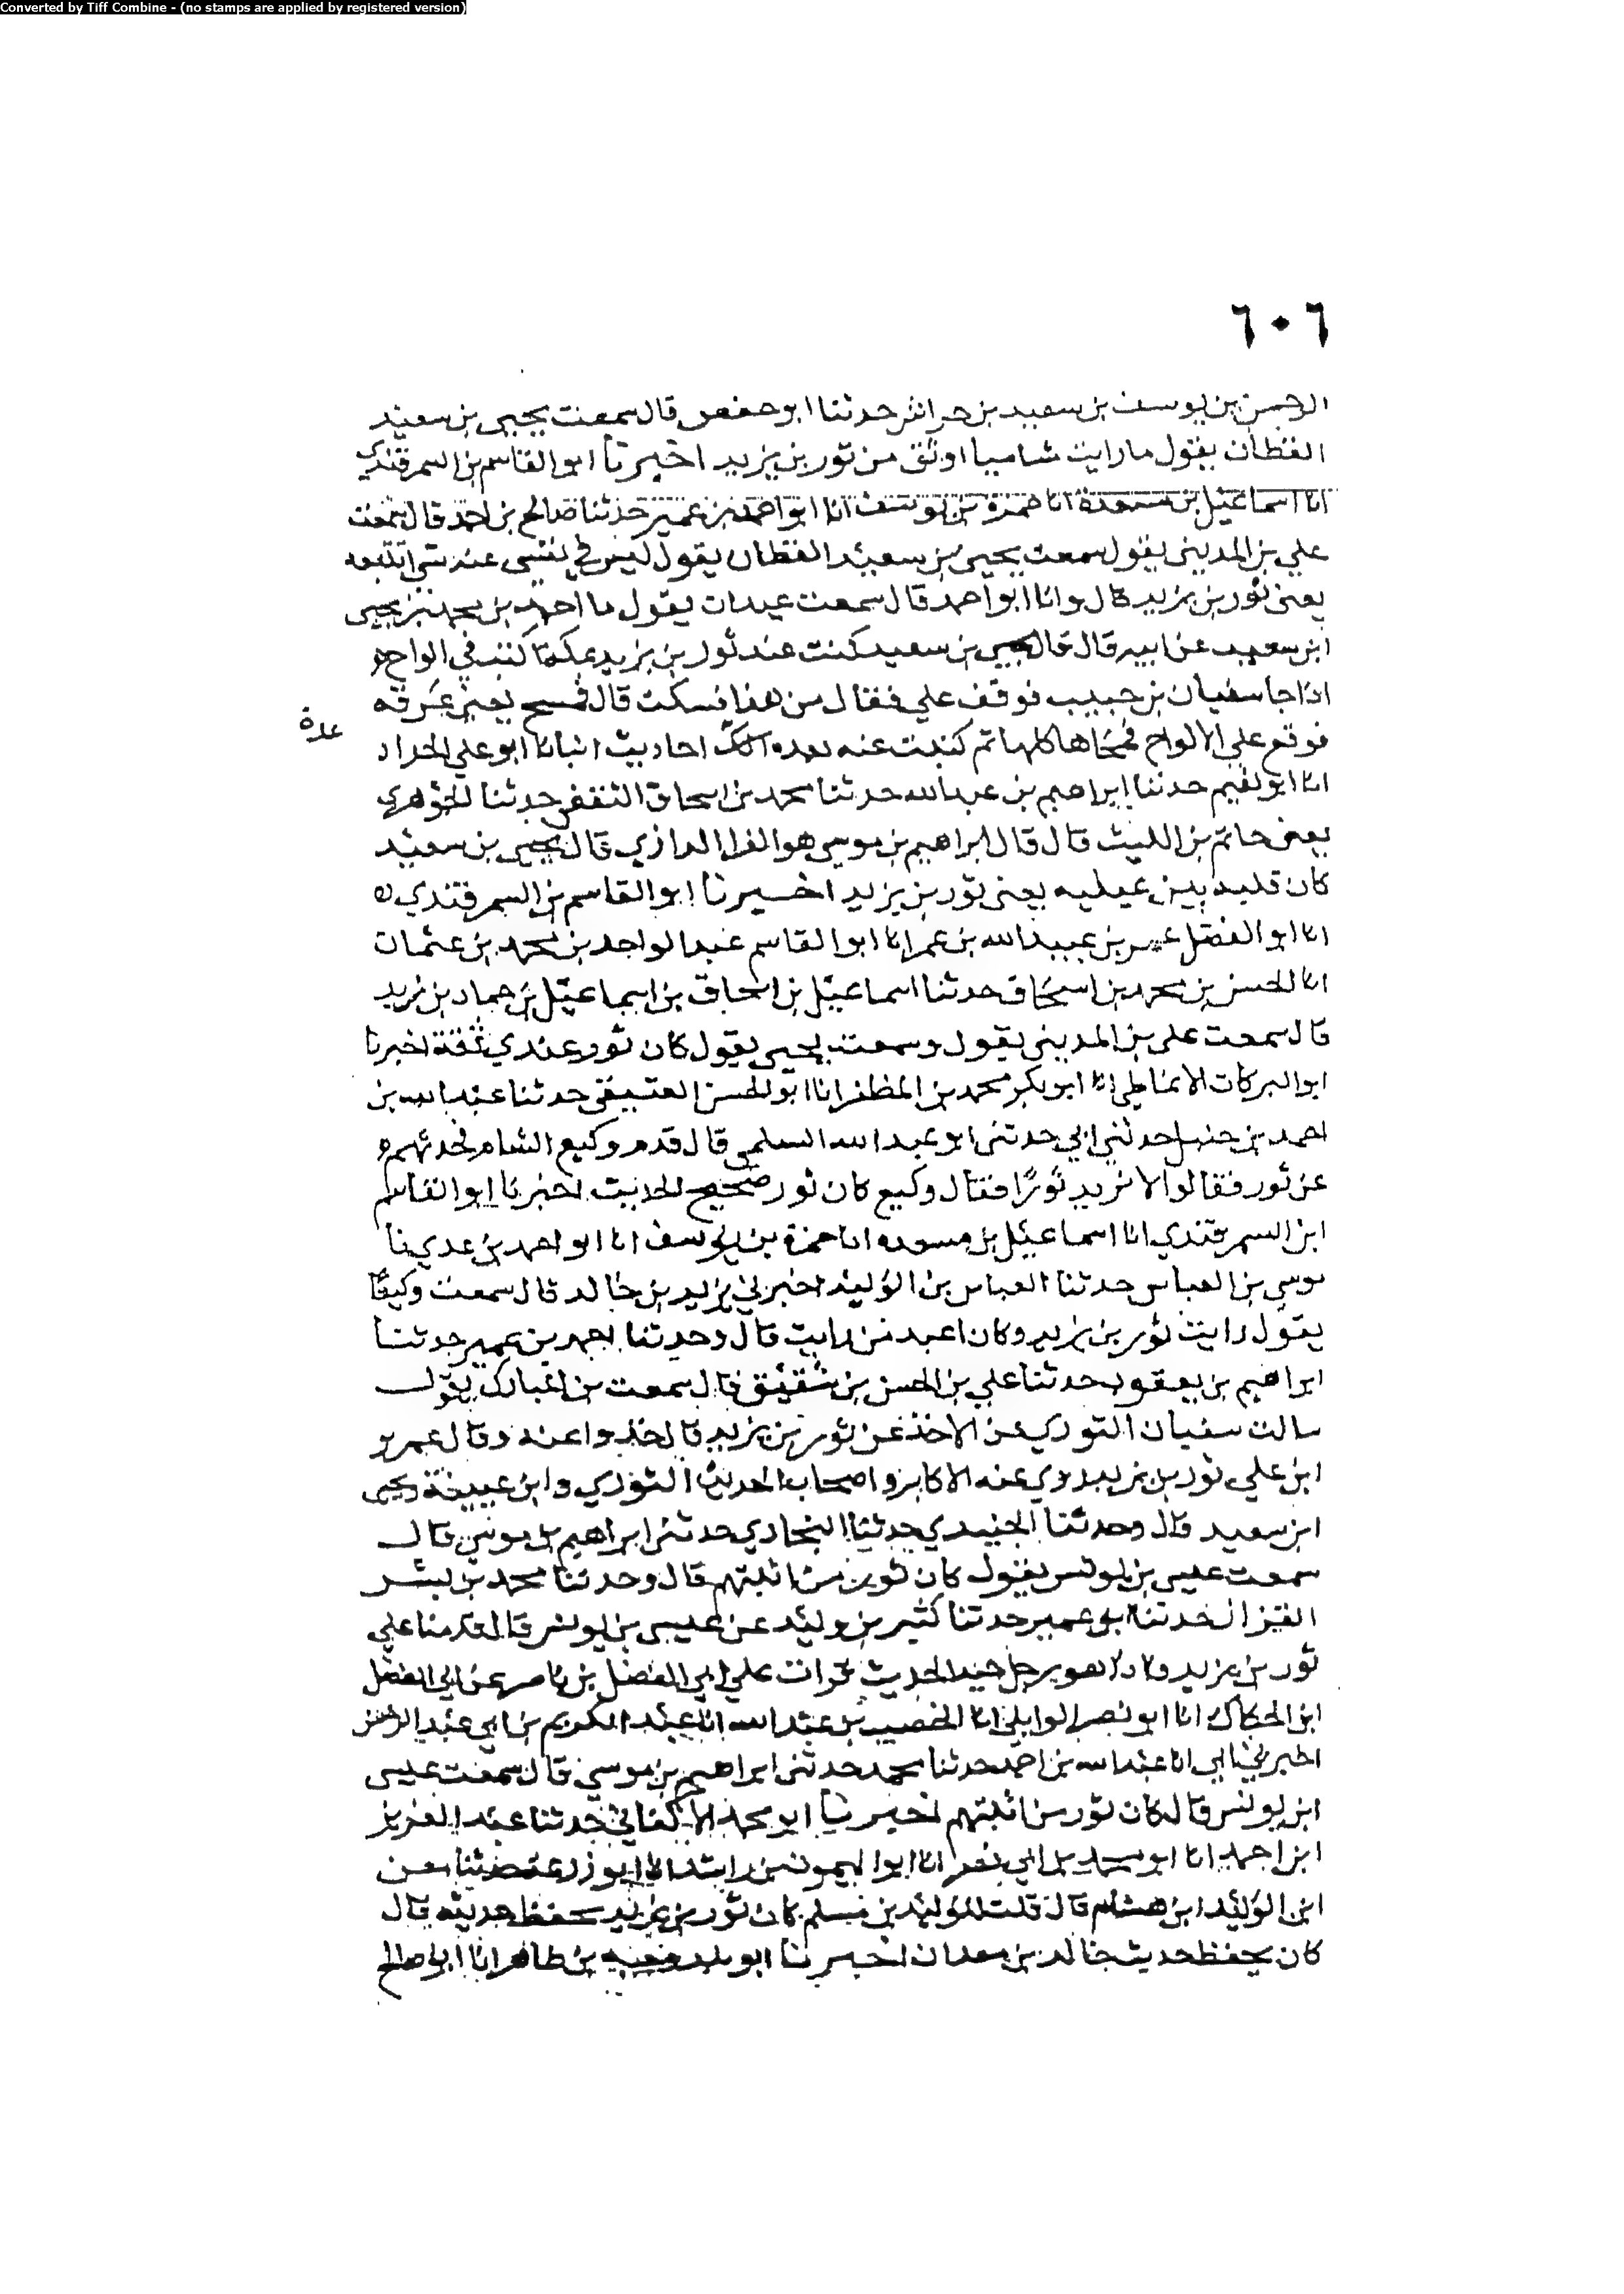 Converted by Tiff Combine - (no stamps are applied by registered version)
٦٠٦
الرحمن بن يوسف بن سعيد بن خراش حدثنا ابو حفص قال سمعت يحيى بن سعيد
القطان يقول ما رايت شاميا اوثق من ثور بن يزيد اخبرنا ابو القاسم بن السمرقندي
انا اسماعيل بن مسعدة انا حمزة بن يوسف انا ابو احمد بن عدي حدثنا صالح بن احمد قال سمعت
علي بن المديني يقول سمعت يحيى بن سعيد القطان يقول ليس في نفسي عنه شي اتتبعه
يعني ثور بن يزيد قال وانا ابو احمد قال سمعت عبدان يقول ما احمد بن محمد بن يحيى
ابن سعيد عن ابيه قال قال يحيى بن سعيد كنت عند ثور بن يزيد بمكة اكتب في الواح
اذا جا سفيان بن حبيب فوقف علي فقال من هذا فسكت قال فمسح يعني عرقه
فوقع على الالواح فمحاها كلها ثم كتبت عنه بعد ذلك احاديث انبانا ابو علي الحداد
عدة
انا ابو نعيم حدثنا ابراهيم بن عبد الله حدثنا محمد بن اسحاق الثقفي حدثنا الجوهري
يعني حاتم بن الليث قال قال ابراهيم بن موسى هو الفرا الرازي قال يحيى بن سعيد
كان قليد بين عينيه يعني ثور بن يزيد اخبرنا ابو القاسم بن السمرقندي
انا ابو الفضل عمر بن عبيد الله بن عمر انا ابو القاسم عبد الواحد بن محمد بن عثمان
انا الحسن بن محمد بن اسحاق حدثنا اسماعيل بن اسحاق بن اسماعيل بن حماد بن زيد
قال سمعت علي بن المديني يقول وسمعت يحيى يقول كان ثور عندي ثقة اخبرنا
ابو البركات الانماطي انا ابو بكر محمد بن المظفر انا ابو الحسن العتيقي حدثنا عبد الله بن
احمد بن حنبل حدثني ابي حدثني ابو عبد الله السلمي قال قدم وكيع الشام فحدثهم
عن ثور فقالوا لا نريد ثورًا فقال وكيع كان ثور صحيح الحديث اخبرنا ابو القاسم
ابن السمرقندي انا اسماعيل بن مسعده انا حمزة بن يوسف انا ابو احمد بن عدي نا
موسى بن العباس حدثنا العباس بن الوليد اخبرني يزيد بن خالد قال سمعت وكيعًا
يقول رايت ثور بن يزيد وكان اعبد من رايت قال وحدثنا احمد بن عمير حدثنا
ابراهيم بن يعقوب حدثنا علي بن الحسن بن شقيق قال سمعت بن المبارك يقول
سالت سفيان الثوري عن الاخذ عن ثور بن يزيد قال خذوا عنه وقال عمرو
ابن علي ثور بن يزيد روي عنه الاكابر واصحاب الحديث الثوري وابن عيينة ويحيى
ابن سعيد قال وحدثنا الجنيدي حدثنا البخاري حدثني ابراهيم بن موسى قال
سمعت عيسى بن يونس يقول كان ثور من اثبتهم قال وحدثنا محمد بن بشر
القزاز حدثنا ابو عمير حدثنا كثير بن وليد عن عيسى بن يونس قال قدمنا على
ثور بن يزيد واذا هو رجل جيد الحديث قرات على ابي الفضل بن ناصر عن ابي الفضل
ابن الحكاك انا ابو نصر الوايلي انا الخصيب بن عبد الله انا عبد الكريم بن ابي عبد الرحمن
اخبرني ابي انا عبد الله بن احمد حدثنا محمد حدثني ابراهيم بن موسى قال سمعت عيسى
ابن يونس قال كان ثور من اثبتهم اخبرنا ابو محمد الاكفاني حدثنا عبد العزيز
ابن احمد انا ابو محمد بن ابي نصر انا ابو الميمون بن راشد انا ابو زرعة حدثنا معن
ابن الوليد ابن هشام قال قلت للوليد بن مسلم كان ثور بن يزيد يحفظ حديثه قال
كان يحفظ حديث خالد بن معدان اخبرنا ابو بكر وجيه بن طاهر انا ابو صالح